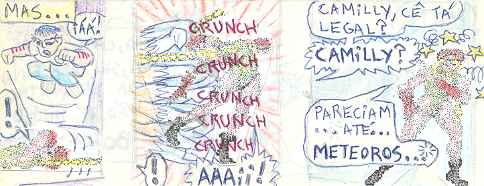 MAS...
IÁÁ!
!
CRUNCH
CRUNCH
CRUNCH
CRUNCH
CRUNCH
!
AAAii!
CAMiLLY, CÊ TÁ
LEGAL?
CAMiLLY?
PARECIAM
...ATÉ...
METEOROS...